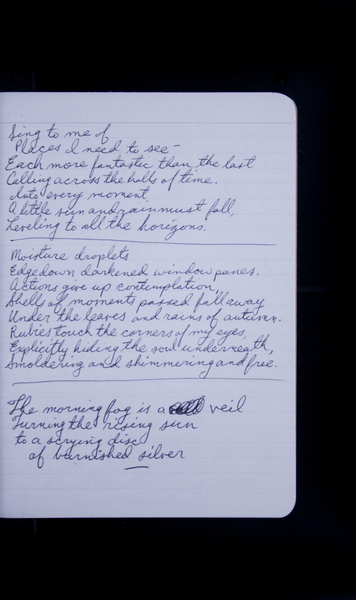 Sing to me of
Places I need to see –
Each more fantastic than the last
Calling across the halls of time.
Into every moment
A little sun and rain must fall,
Leveling to all the horizons.
Moisture droplets
Edge down darkened window panes.
Actions give up contemplation,
Shells of moments passed fall away
Under the leaves and rains of autumn.
Rubies touch the corners of my eyes,
Explicitly hiding the soul underneath,
Smoldering and shimmering and free.
The morning fog is a veil
Turning the rising sun
to a scrying disc
of burnished silver